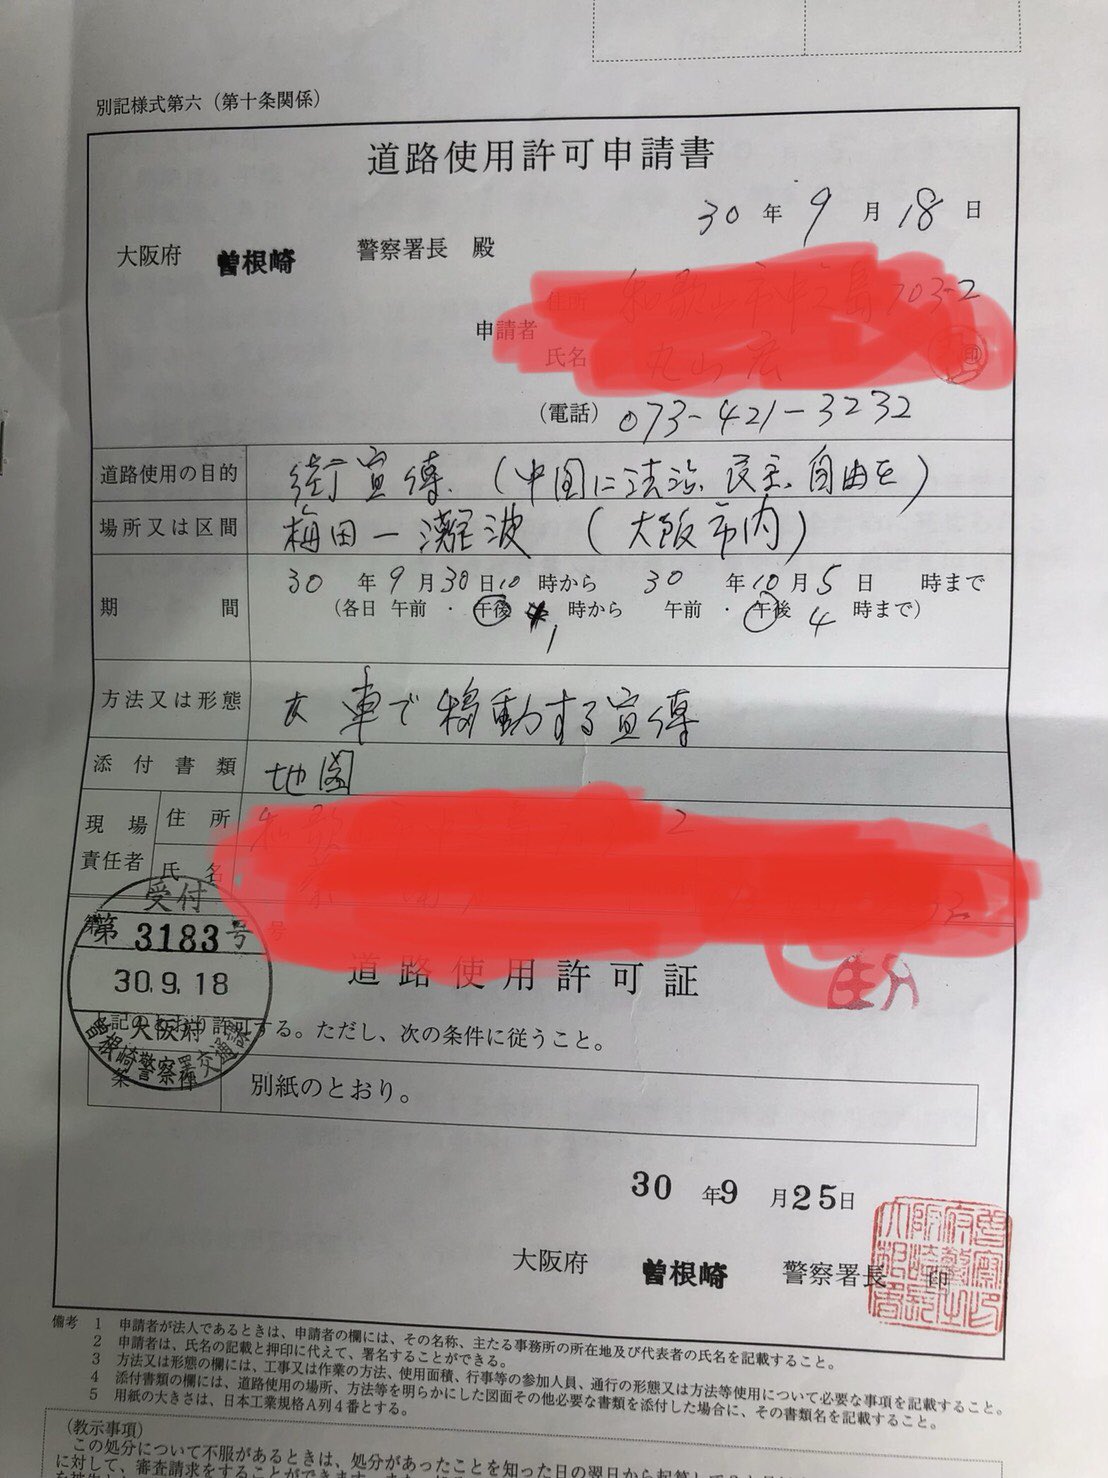 別記様式第六（第十条関係）
道路使用許可申請書
30 年 9 月 18 日
大阪府 曽根崎 警察署長 殿
住所
申請者
氏名
（電話） 073-421-3232
道路使用の目的 街宣傳（中国に法治、民主、自由を）
場所又は区間 梅田ー灘波（大阪市内）
期間 30 年 9 月 30 日 10 時から 30 年 10 月 5 日 時まで
（各日 午前・午後 1 時から 午前・午後 4 時まで）
方法又は形態 車で移動する宣傳
添付書類 地図
現場責任者 住所
氏名
受付
第 3183 号
30.9.18
大阪府
曽根崎警察署交通課
道路使用許可証
上記のとおり許可する。ただし、次の条件に従うこと。
条件 別紙のとおり。
30 年 9 月 25 日
大阪府 曽根崎 警察署長 印
備考 1 申請者が法人であるときは、申請者の欄には、その名称、主たる事務所の所在地及び代表者の氏名を記載すること。
2 申請者は、氏名の記載と押印に代えて、署名することができる。
3 方法又は形態の欄には、工事又は作業の方法、使用面積、行事等の参加人員、通行の形態又は方法等使用について必要な事項を記載すること。
4 添付書類の欄には、道路使用の場所、方法等を明らかにした図面その他必要な書類を添付した場合に、その書類名を記載すること。
5 用紙の大きさは、日本工業規格Ａ列４番とする。
（教示事項）
この処分について不服があるときは、処分があったことを知った日の翌日から起算して3か月
に対して、審査請求をすることができます。